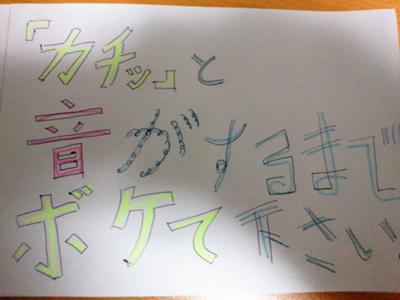 「カチッ」と
音がするまで
ボケて下さい